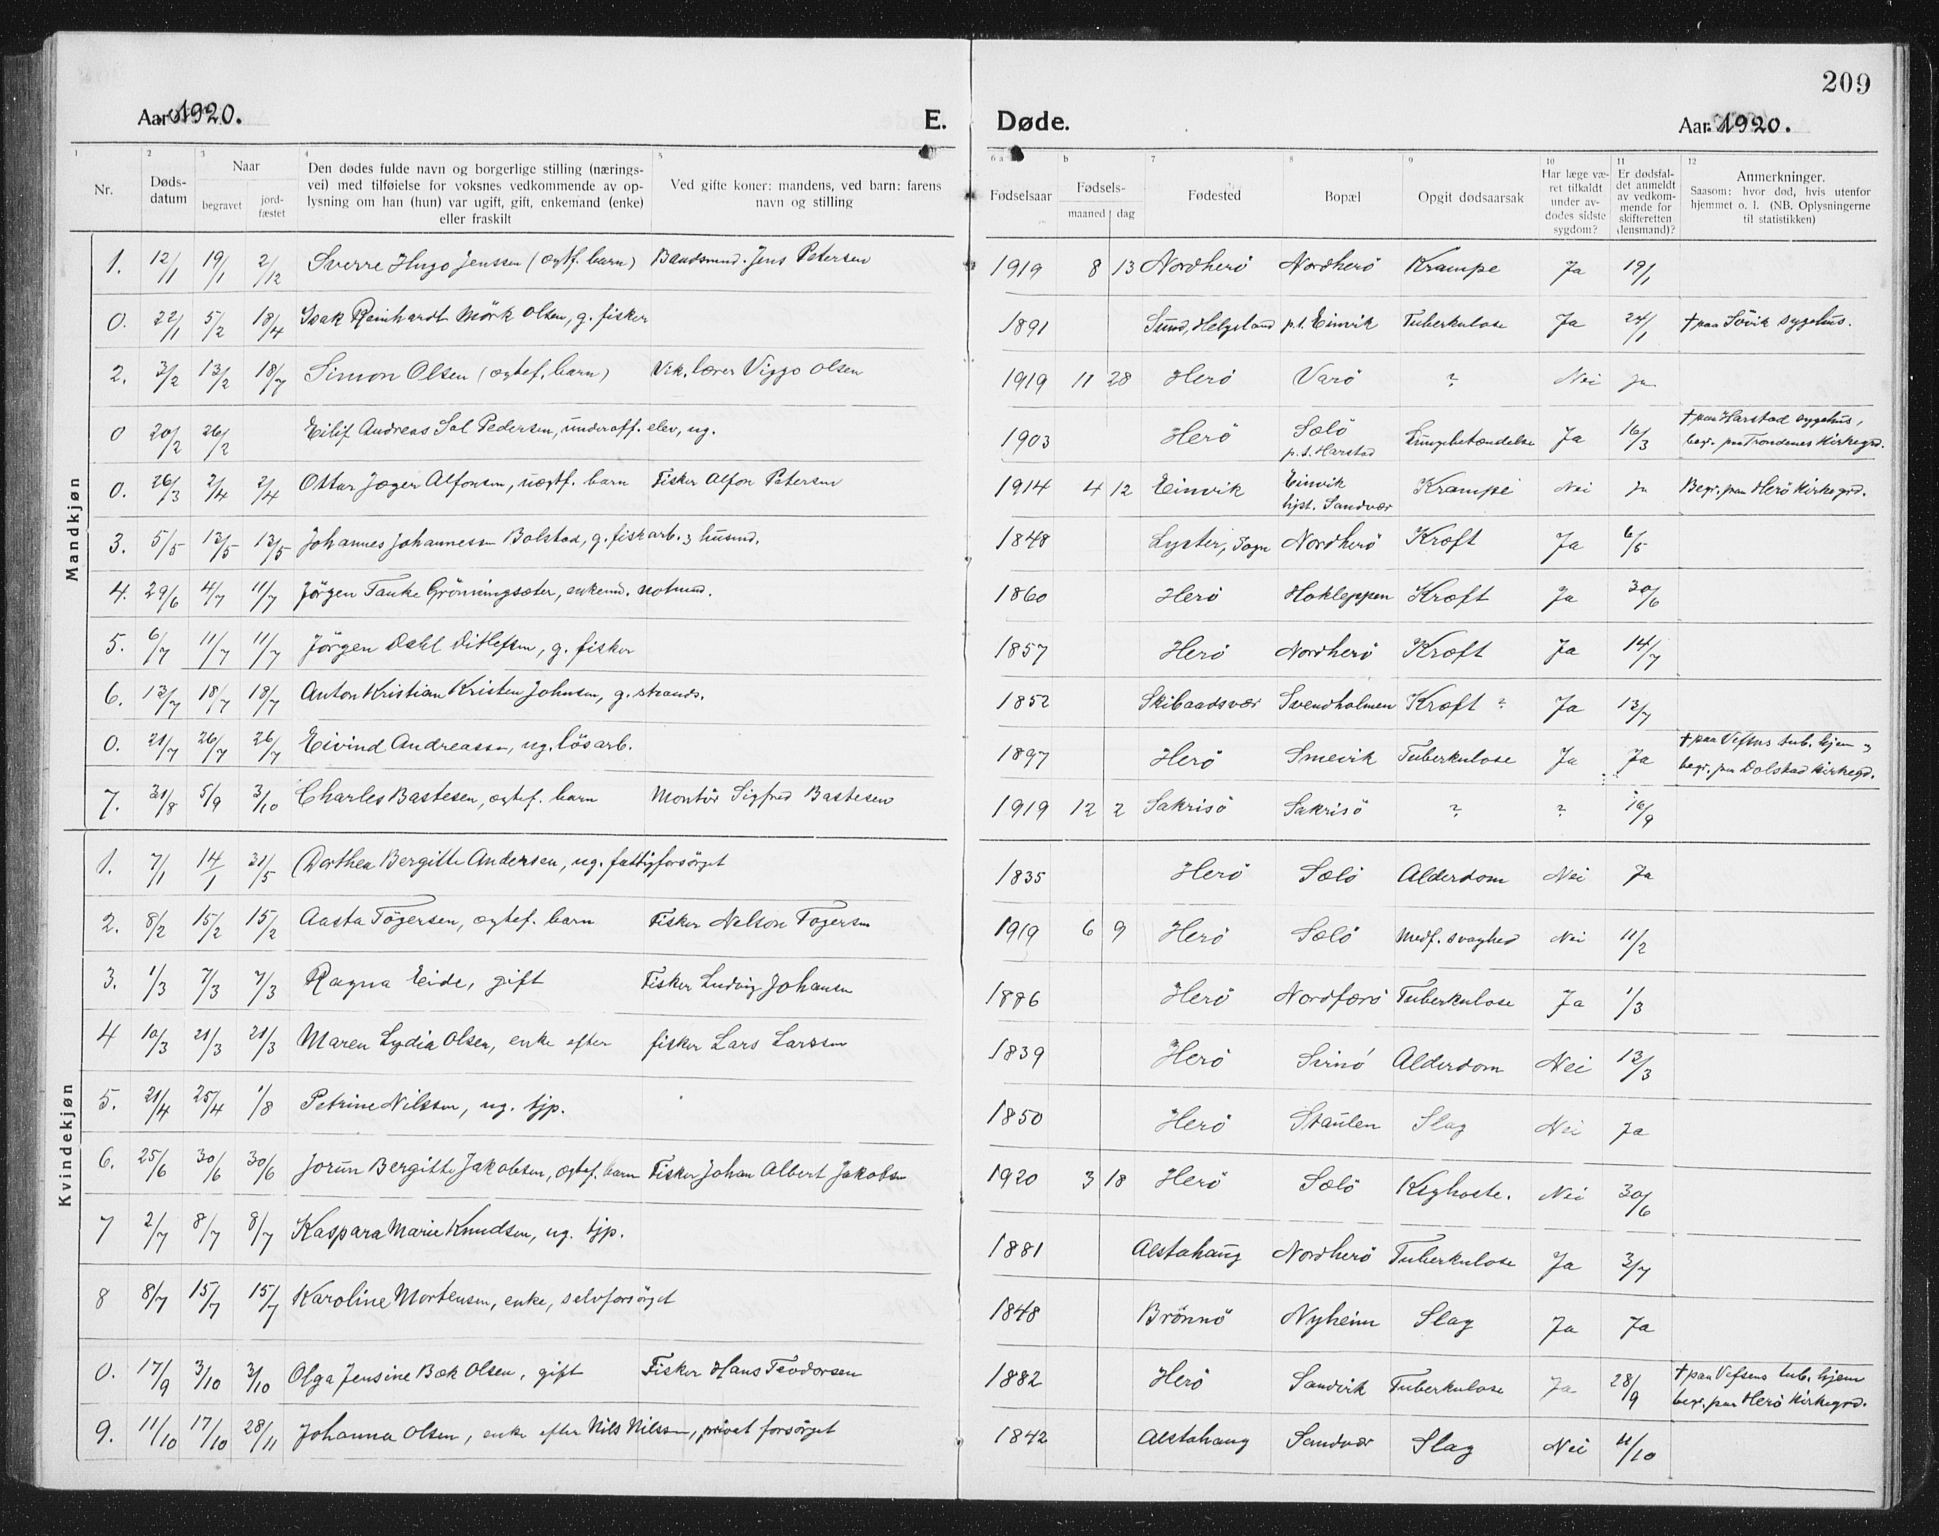 209
Aar 1920. E. Døde. Aar 1920.
1 2 3 4 5 6 a b 7 8 9 10 11 12
Nr. Døds-datum Naar begravet jord-fæstet Den dødes fulde navn og borgerlige stilling (nærings-vei) med tilføielse for voksnes vedkommende av op-lysning om han (hun) var ugift, gift, enkemand (enke) eller fraskilt Ved gifte koner: mandens, ved barn: farens navn og stilling Fødselsaar Fødsels- maaned dag Fødested Bopæl Opgit dødsaarsak Har læge væ-ret tilkaldt under av-dødes sidste sygdom? Er dødsfal-det anmeldt av vedkom-mende for skifteretten (lensmand)? Anmerkninger. Saasom: hvor død, hvis utenfor hjemmet o. l. (NB. Oplysningerne til statistikken)
Mandkjøn
1. 12/1 19/1 2/12 Sverre Hugo Jenssen (egtf. barn) Baadsmd. Jens Petersen 1919 8 13 Nordherö Nordherö Krampe Ja 19/1
0. 22/1 5/2 18/4 Isak Reinhardt Mörk Olsen, g. fisker 1891 Sund, Helgeland p.t. Einvik Tuberkulose Ja 24/1 † paa Sövik sygehus.
2. 3/2 13/2 18/7 Simon Olsen (egtef. barn) Vik. lærer Viggo Olsen 1919 11 28 Herö Varö ? Nei Ja
0 20/2 26/2 Eilif Andreas Sal Pedersen, underoff. elev, ug. 1903 Herö Sælö p.t. Harstad Lungebetændelse Ja 16/3 † paa Harstad sygehus, begr. paa Trondenes Kirkegrd.
0. 26/3 2/4 2/4 Ottar Jæger Alfonsen, uegtf. barn Fisker Alfon Petersen 1914 4 12 Einvik Einvik hjst. Sandvær Krampe Nei Ja Begr. paa Herö Kirkegrd.
3. 5/5 13/5 13/5 Johannes Johannessen Bolstad, g. fiskarb. & husmd. 1848 Lyster, Sogn Nordherö Kræft Ja 6/5
4. 29/6 4/7 11/7 Jörgen Tanke Grönningsæter, enkemd. notmd. 1860 Herö Hokleppen Kræft Ja 30/6
5. 6/7 11/7 11/7 Jörgen Dahl Ditlefsen, g. fisker 1857 Herö Nordherö Kræft Ja 14/7
6. 13/7 18/7 18/7 Anton Kristian Kristen Johnsen, g. strands. 1852 Skibaadsvær Svendholmen Kræft ? Ja 13/7
0. 21/7 26/7 26/7 Eivind Andreassen, ug. lösarb. 1897 Herö Smevik Tuberkulose Ja Ja † paa Vefsns tub. hjem & begr. paa Dolstad Kirkegd.
7. 31/8 5/9 3/10 Charles Bastesen, egtef. barn Montör Sigfred Bastesen 1919 12 2 Sakrisö Sakrisö ? ? 16/9
Kvindekjøn
1. 7/1 14/1 31/5 Dorthea Bergitte Andersen, ug. fattigforsörget 1835 Herö Sælö Alderdom Nei Ja
2. 8/2 15/2 15/2 Aasta Tögersen, egtef. barn Fisker Nelson Tögersen 1919 6 9 Herö Sælö Medf. svaghed Nei 11/2
3. 1/3 7/3 7/3 Ragna Eide, gift Fisker Ludvig Johansen 1886 Herö Nordfærö Tuberkulose Ja 1/3
4 10/3 21/3 21/3 Maren Lydia Olsen, enke efter fisker Lars Larssen 1839 Herö Svinö Alderdom Nei 13/3
5. 21/4 25/4 1/8 Petrine Nilssen, ug. tjp. 1850 Herö Staulen Slag Nei Ja
6. 25/6 30/6 30/6 Jorun Bergitte Jakobsen, egtef. barn Fisker Johan Albert Jakobsen 1920 3 18 Herö Sælö Kighoste. Nei 30/6
7 2/7 8/7 8/7 Kaspara Marie Knudsen, ug. tjp. 1881 Alstahaug Nordherö Tuberkulose Ja 3/7
8 8/7 15/7 15/7 Karoline Mortensen, enke, selvforsörget 1848 Brönnö Nyheim Slag Ja Ja
0. 17/9 3/10 3/10 Olga Jensine Bæk Olsen, gift Fisker Hans Teodorsen 1882 Herö Sandvik Tuberkulose Ja 28/9 † paa Vefsens tub. hjem begr. paa Herö Kirkegrd.
9. 11/10 17/10 28/11 Johanna Olsen, enke efter Nils Nilssen, privat forsörget 1842 Alstahaug Sandvær Slag Nei 11/10